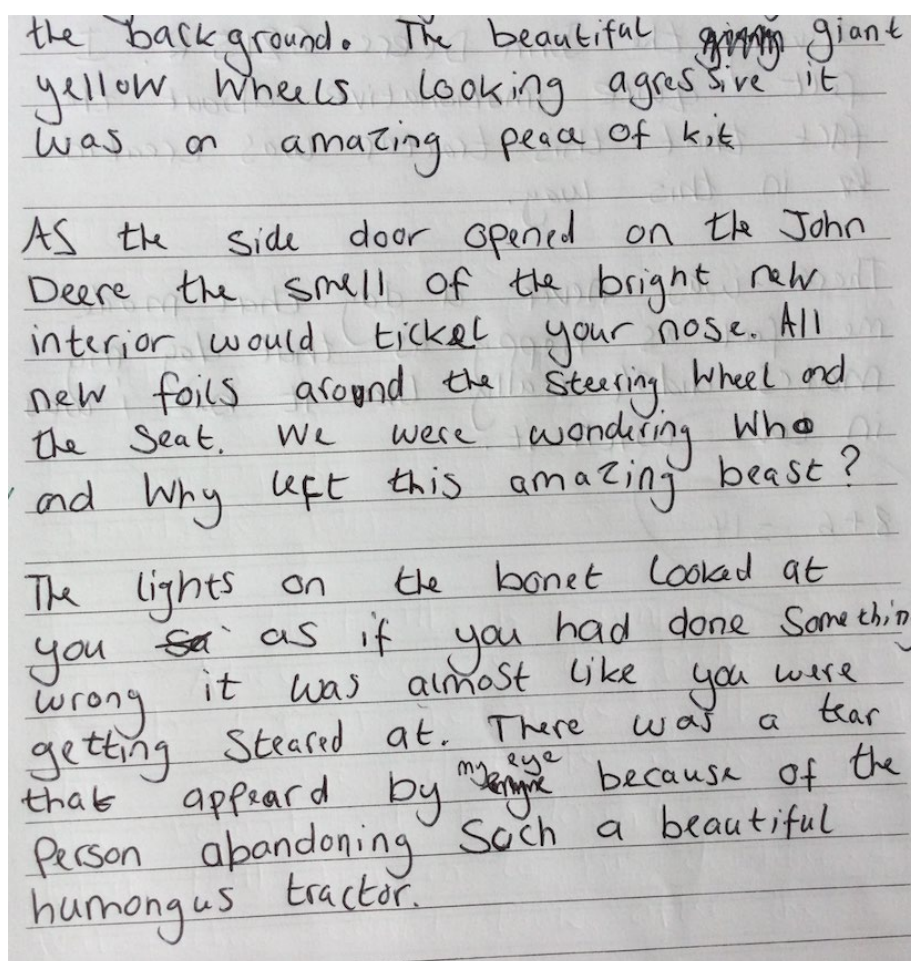 the background. The beautiful giant
yellow wheels looking agressive it
was an amazing peace of kit
As the side door opened on the John
Deere the smell of the bright new
interior would tickel your nose. All
new foils around the steering wheel and
the seat. We were wondering who
and why left this amazing beast?
The lights on the bonet looked at
you as if you had done somethin
wrong it was almost like you were
getting steared at. There was a tear
that appeard by my eye because of the
person abandoning such a beautiful
humongus tractor.